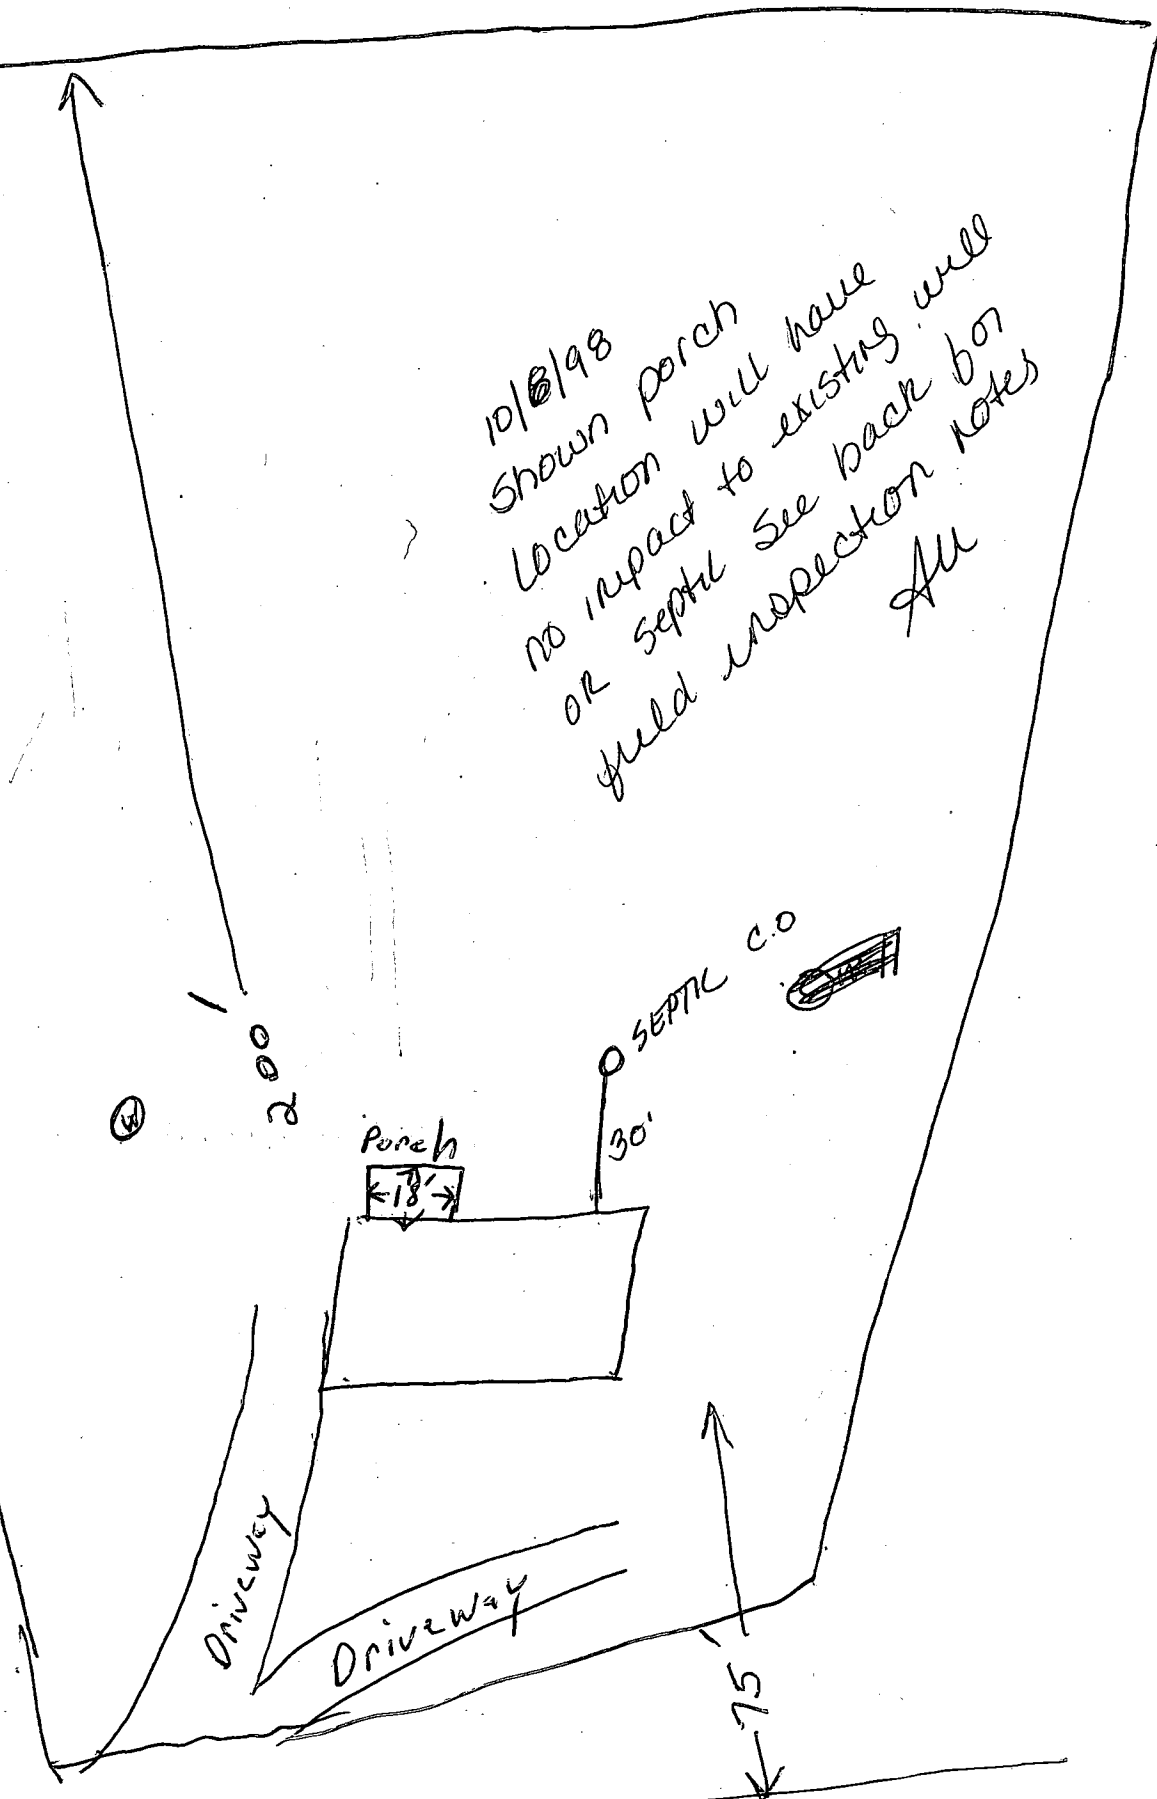 10/8/98
Shown porch
location will have
no impact to existing well
OR septic See back for
field inspection notes
SEPTIC C.O
200'
W
Porch
30'
18'
Driveway
Driveway
75'